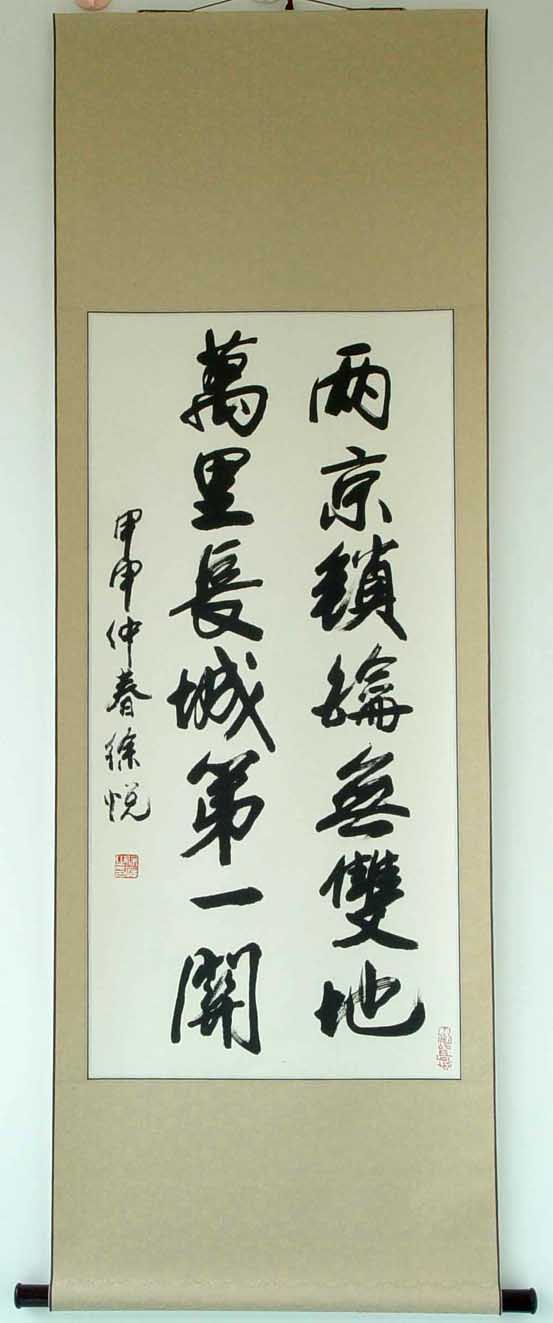 两京鎖鑰無雙地
萬里長城第一關
甲申仲春徐悦